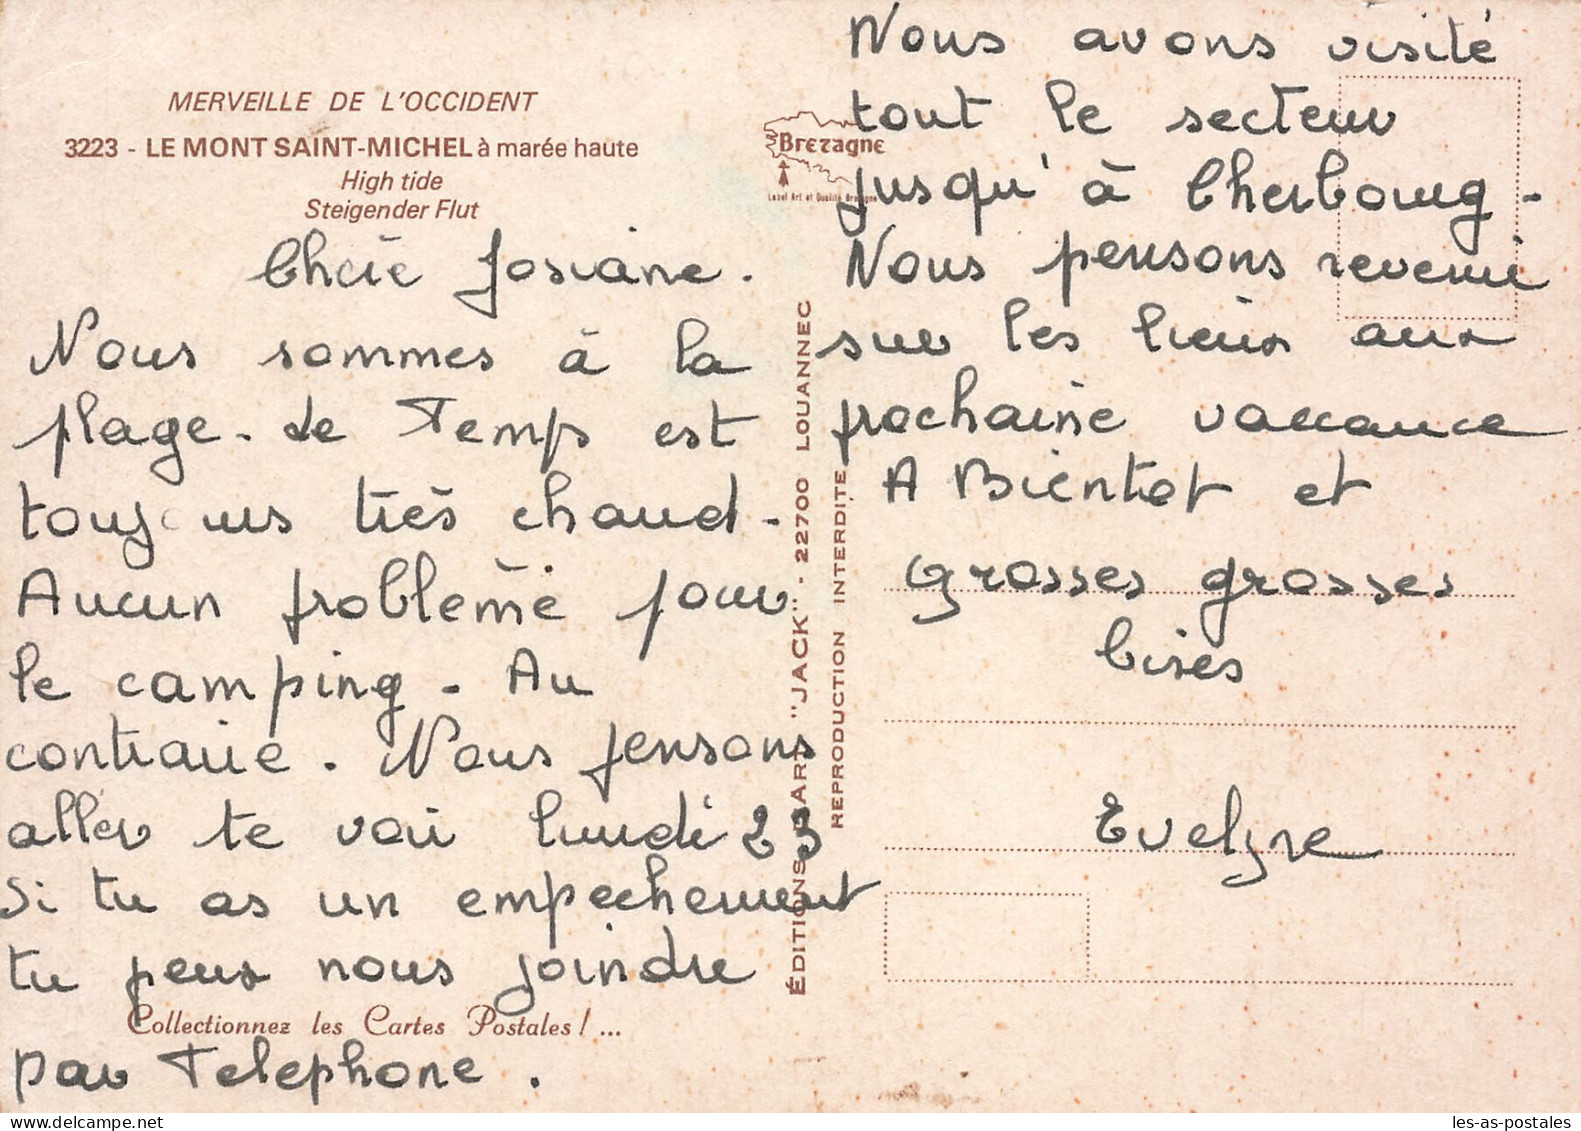 MERVEILLE DE L'OCCIDENT
3223 - LE MONT SAINT-MICHEL à marée haute
High tide
Steigender Flut
Chère Josiane.
Nous sommes à la
plage. Le Temps est
toujours très chaud.
Aucun problème pour
le camping - Au
contraire. Nous pensons
aller te voir lundi 23
Si tu as un empechement
tu peux nous joindre
Collectionnez les Cartes Postales ! ...
par Telephone.
ÉDITIONS D'ART "JACK" - 22700 LOUANNEC
REPRODUCTION INTERDITE
Bretagne
Label Art et Qualité Bretagne
Nous avons visité
tout le secteur
jusqu'à Cherbourg -
Nous pensons revenir
sur les lieux aux
prochaine vaccance
A Bientot et
Grosses grosses
bises
Evelyne
les-as-postales